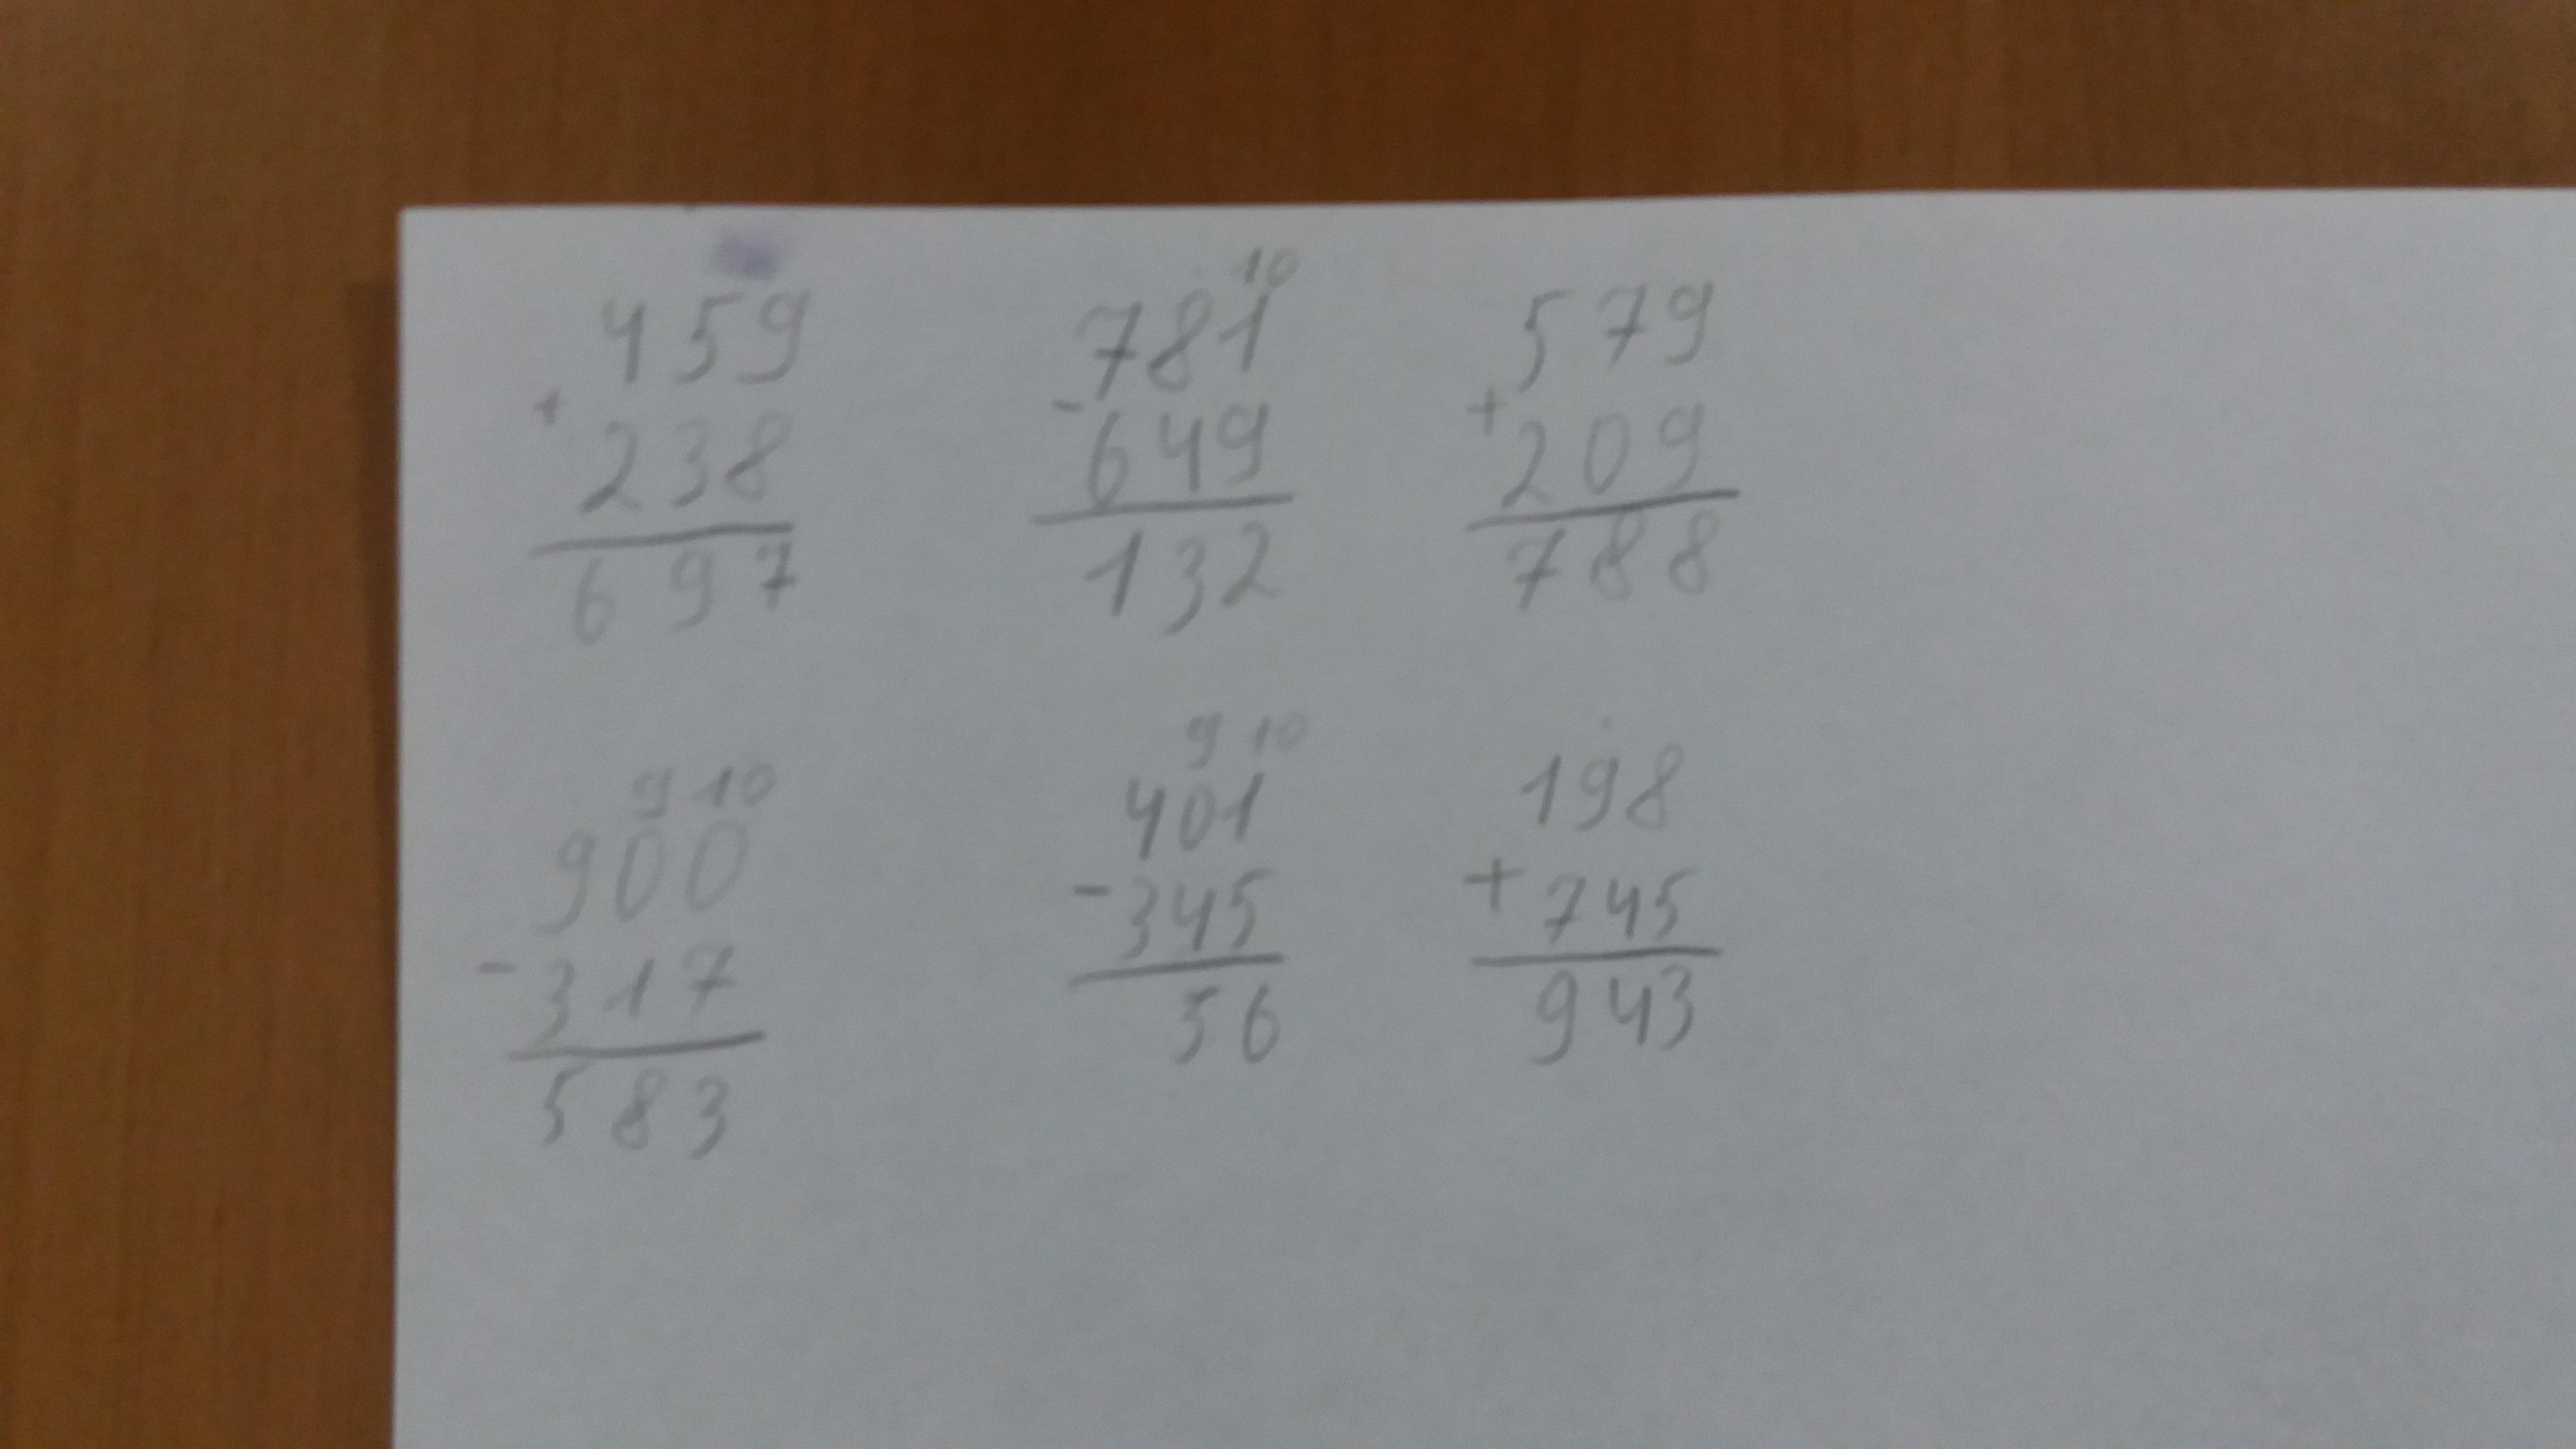 10
459 781 579
+ - +
238 649 209
697 132 788
9 10 9 10
900 401 198
- - +
317 345 745
583 56 943